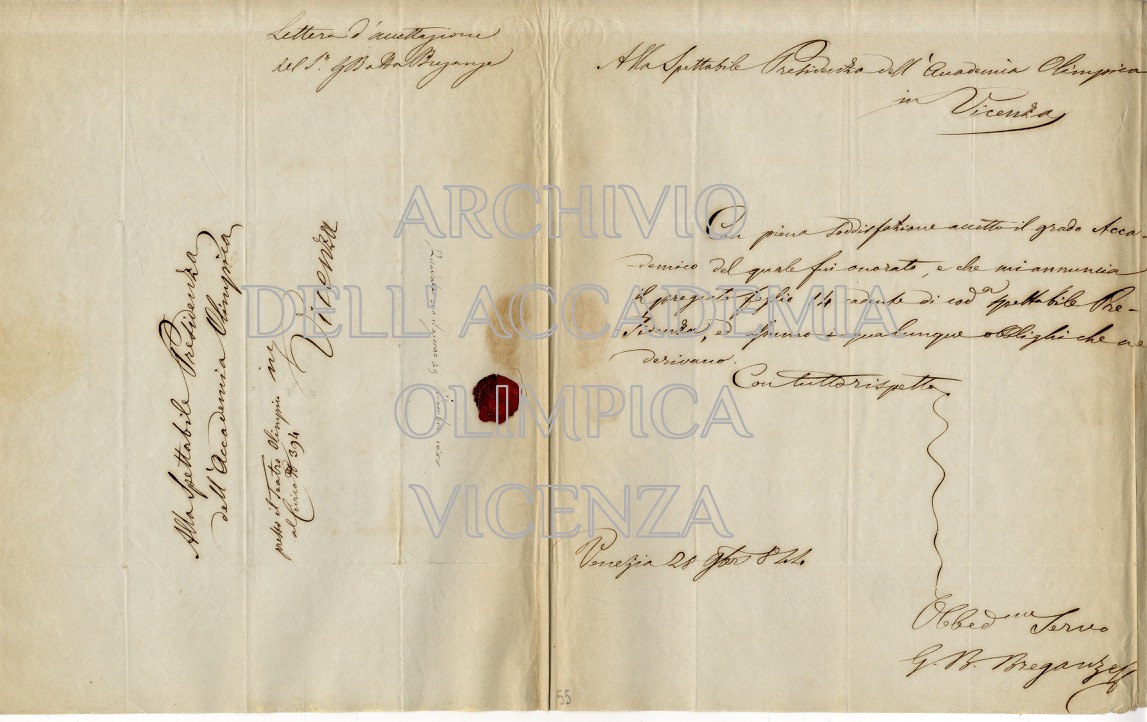 Lettera d'accettazione
del S.r G Batta Breganze
Alla Spettabile Presidenza
dell'Accademia Olimpica
in
Vicenza
presso il Teatro Olimpico
al Civico N 394
Alla Spettabile Presidenza dell'Accademia Olimpica
in
Vicenza
Con piena soddisfazione accetto il grado Acca-
demico del quale fui onorato, e che mi annuncia
il pregiato foglio 14 cadente di cod.a spettabile Pre-
sidenza, ed assumo i qualunque obblighi che ne
derivano.
Con tutto rispetto
Venezia 28 9bre 844.
Obbed.mo Servo
G. B. Breganze
55
ARCHIVIO
DELL'ACCADEMIA
OLIMPICA
VICENZA